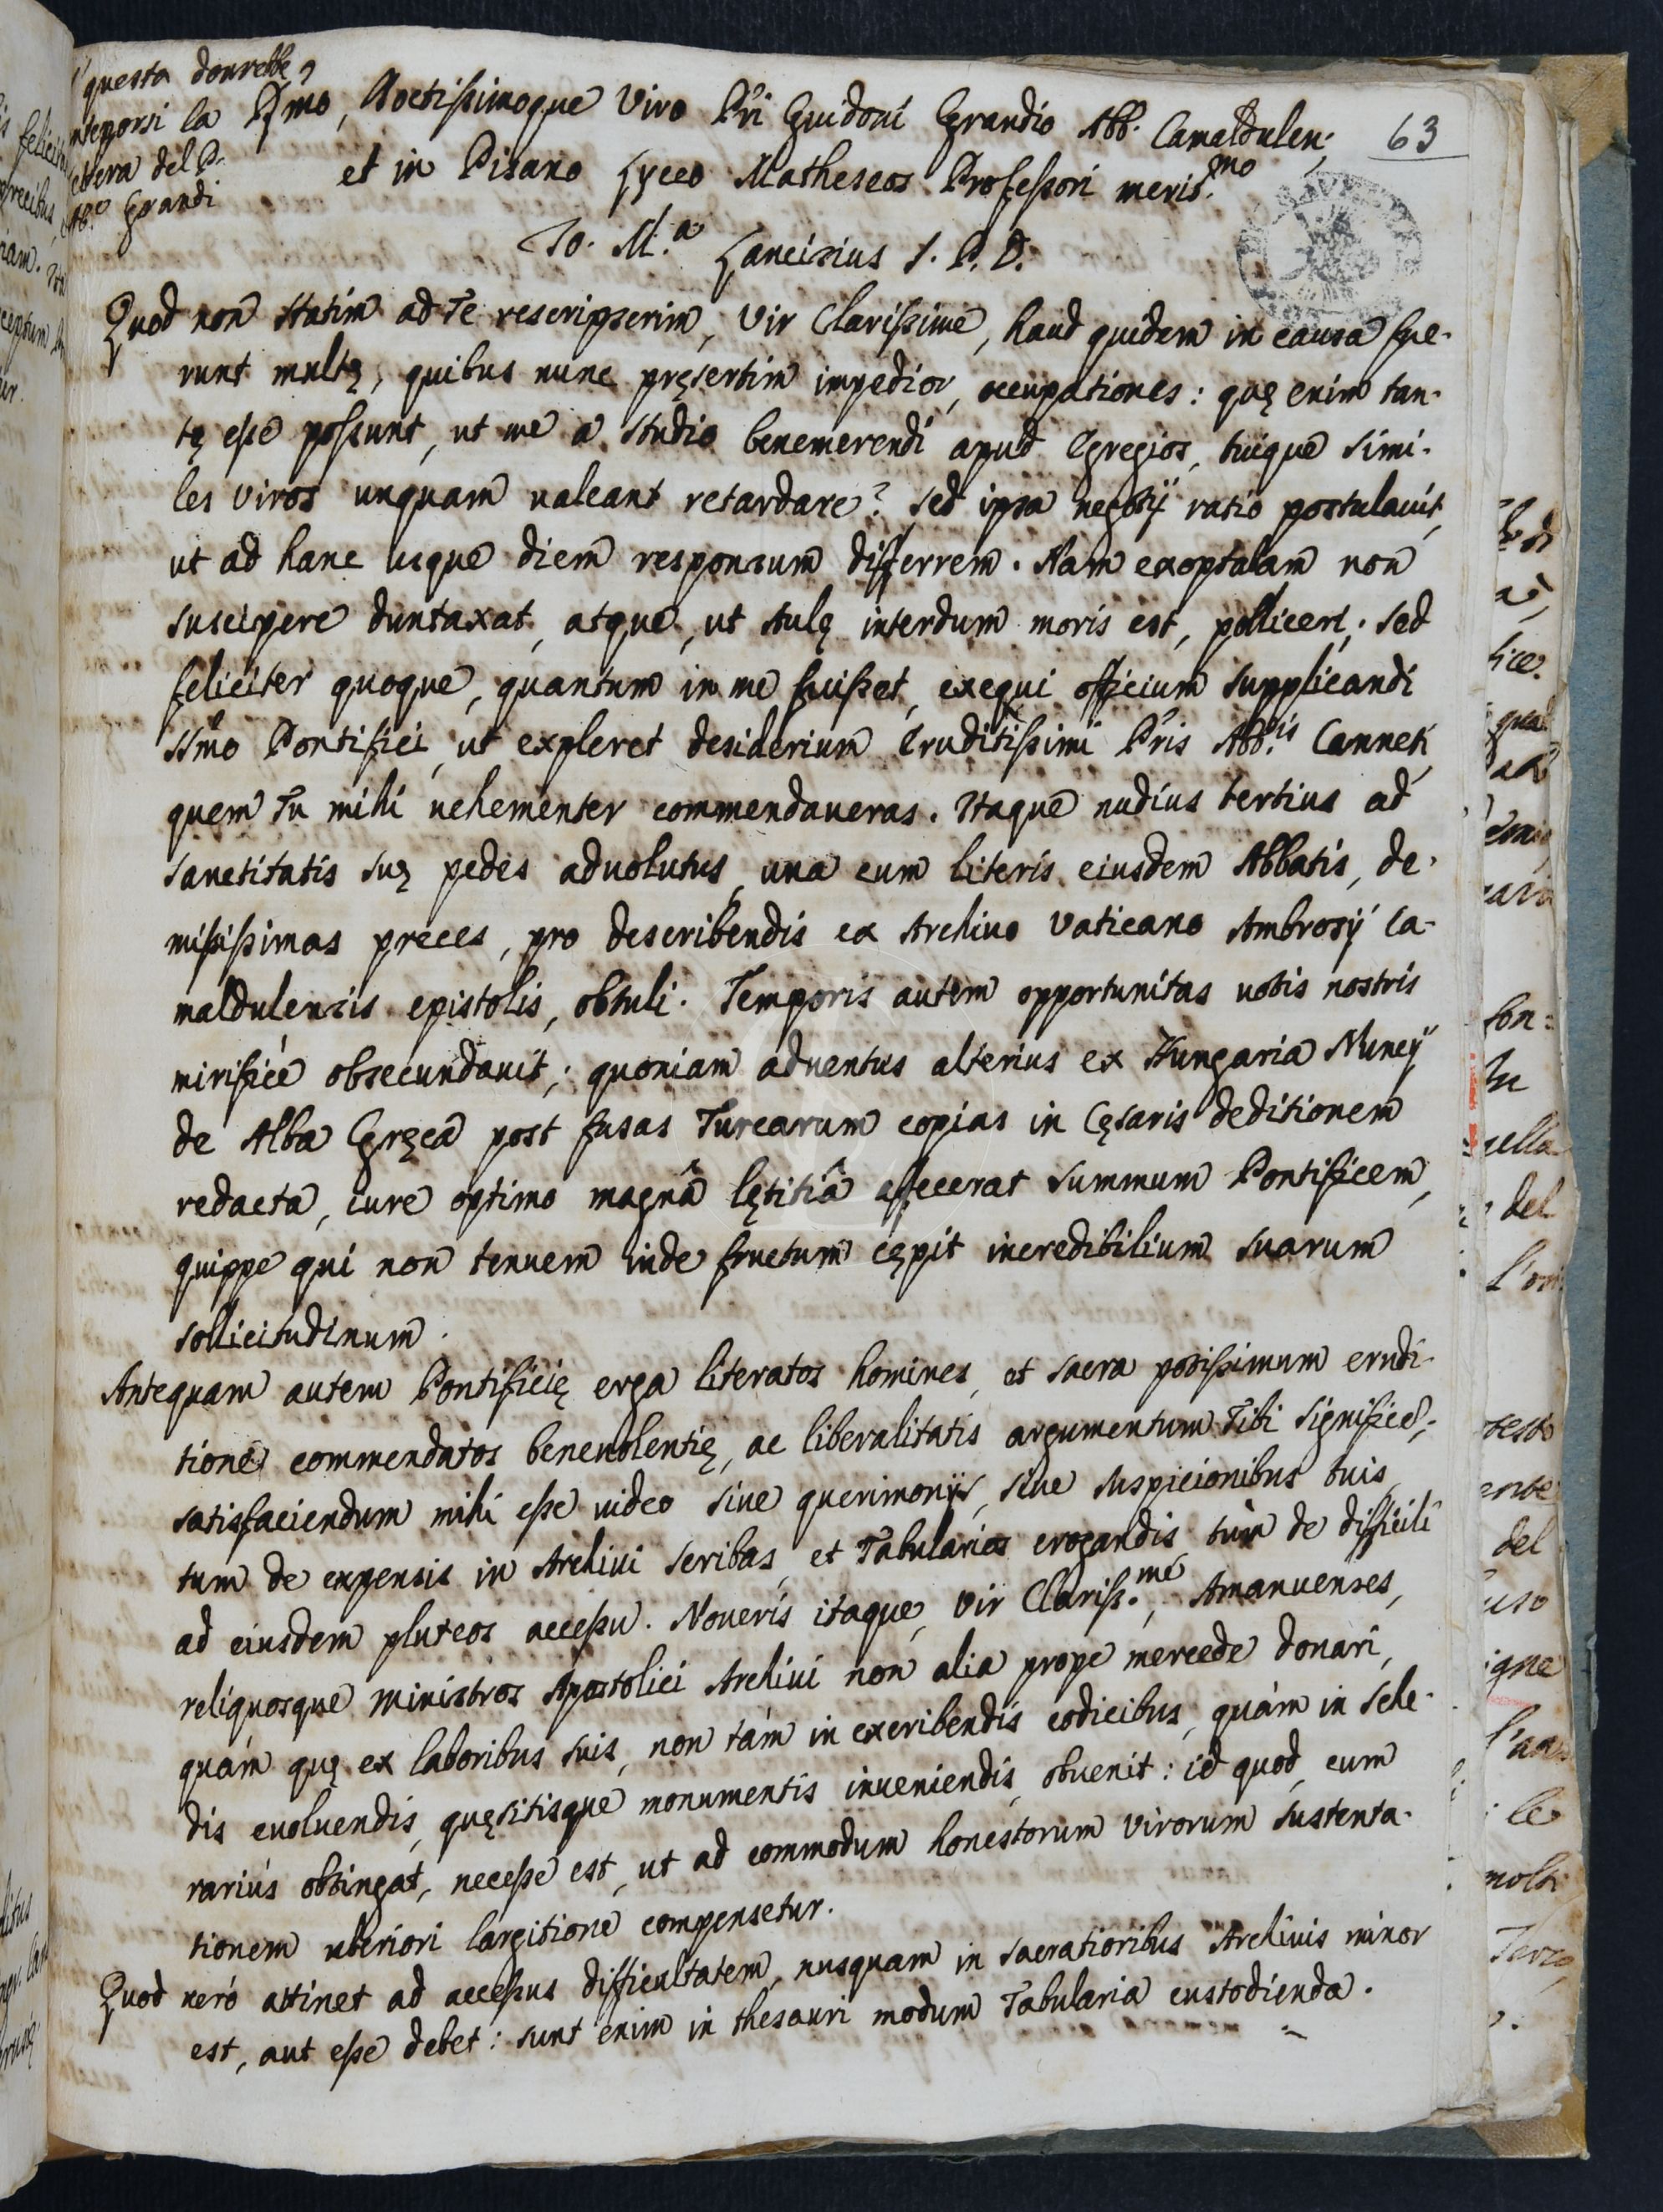 questa dourebbe
anteporsi la
lettera del P.
Ab.e Grandi
63
Rmo, Doctissimoque Viro Pri Guidoni Grandio Abb. Camaldulen.
et in Pisano Lyceo Matheseos Professori merit.mo
Io. M.a Lancisius S. P. D.
Quod non statim ad Te rescripserim, Vir Clarissime, haud quidem in causa fue-
runt multę, quibus nunc pręsertim impedior, occupationes: quę enim tan-
tę esse possunt, ut me a studio benemerendi apud Egregios, tuique simi-
les viros unquam ualeant retardare? Sed ipsa negotij ratio postulauit,
ut ad hanc usque diem responsum differrem. Nam exoptabam non
suscipere duntaxat, atque, ut Aulę interdum moris est, polliceri; sed
feliciter quoque, quantum in me fuisset, exequi officium supplicandi
SSmo Pontifici, ut expleret desiderium Eruditissimi Pris Abb.is Canneti,
quem Tu mihi uehementer commendaueras. Itaque nudius tertius ad
Sanctitatis Suę pedes aduolutus, una cum literis eiusdem Abbatis, de-
missimas preces, pro describendis ex Archiuo Vaticano Ambrosij Ca-
maldulensis epistolis, obtuli. Temporis autem opportunitas uotis nostris
mirificè obsecundauit; quoniam aduentus alterius ex Hungaria Nuncij
de Alba Gręca post fusas Turcarum copias in Cęsaris deditionem
redacta, iure optimo magnâ lętitiâ affecerat Summum Pontificem,
quippe qui non tenuem inde fructum cępit incredibilium suarum
sollicitudinum.
Antequam autem Pontificię erga literatos homines, et sacra potissimum erudi-
tione commendatos beneuolentię, ac liberalitatis argumentum Tibi significē;
satisfaciendum mihi esse uideo siue querimonijs, siue suspicionibus tuis,
tum de expensis in Archiui scribas, et Tabularios erogandis, tùm de difficili
ad eiusdem pluteos accessu. Noueris itaque, Vir Clariss.me, Amanuenses,
reliquosque ministros Apostolici Archiui non alia prope mercede donari,
quàm quę ex laboribus suis, non tàm in exeribendis codicibus, quàm in sche-
dis euoluendis, quęsitisque monumentis inueniendis, obuenit: id quod, cum
rariùs obtingat, necesse est, ut ad commodum honestorum virorum sustenta-
tionem uberiori largitione compensetur.
Quod uerò attinet ad accessus difficultatem, nusquam in sacratioribus Archiuis minor
est, aut esse debet: sunt enim in thesauri modum Tabularia custodienda.